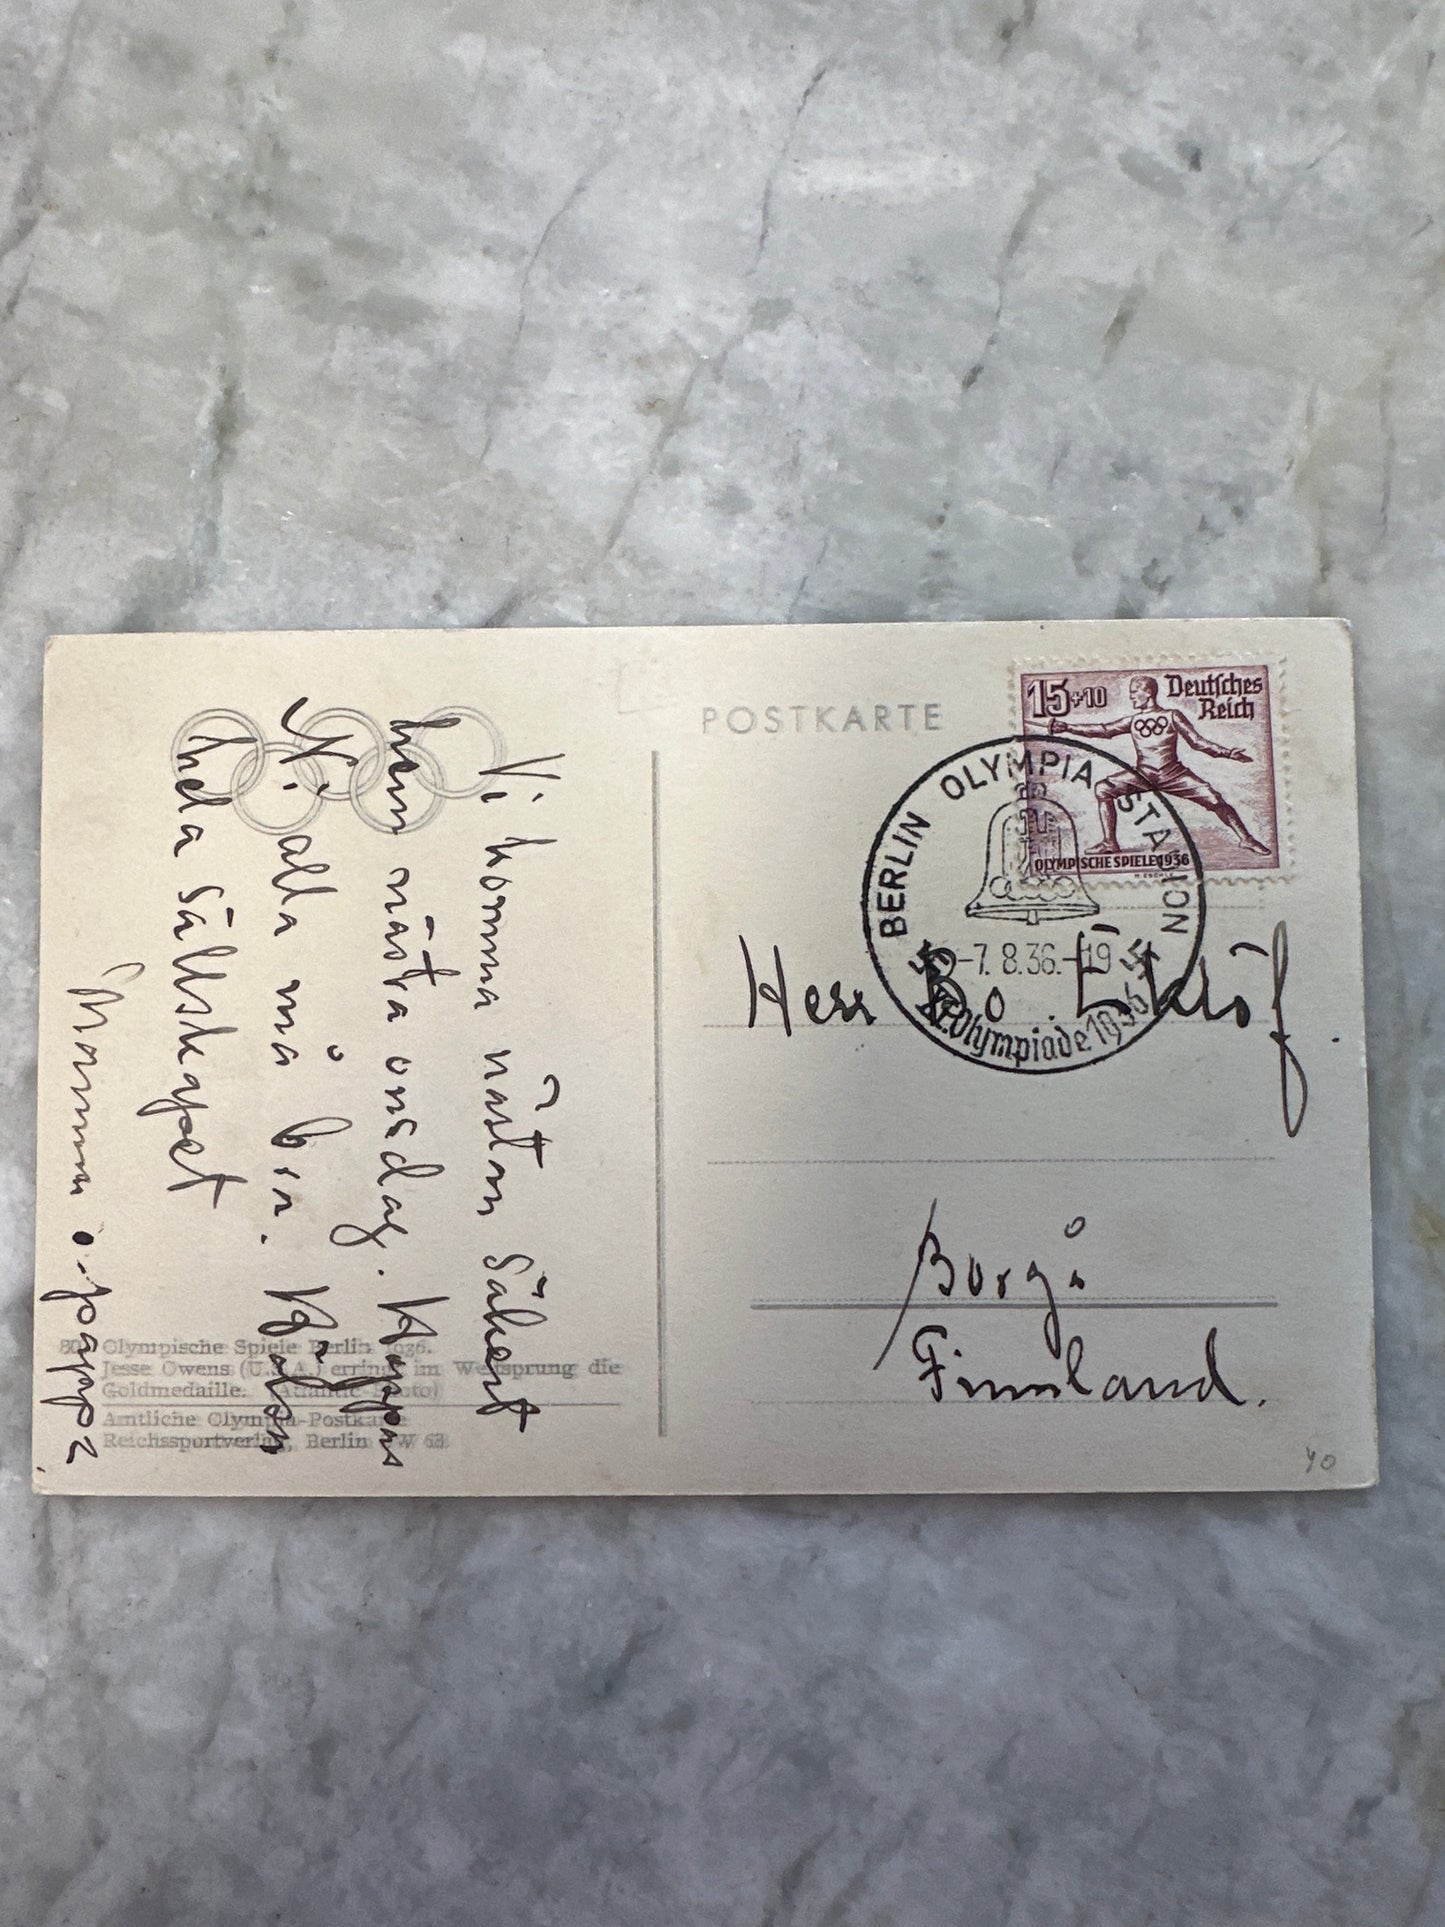 POSTKARTE
15+10
Deutsches
Reich
OLYMPISCHE SPIELE 1936
BERLIN OLYMPIA-STADION
-7.8.36.-19
XI. Olympiade 1936
Herr Bo Eklöf.
Borgå
Finnland.
40
Vi komma nästan säkert
hem nästa onsdag. Hoppas
Ni alla må bra. Hälsn
hela sällskapet
Mamma o. pappa.
80 Olympische Spiele Berlin 1936.
Jesse Owens (U.S.A.) erringt im Weitsprung die
Goldmedaille. (Atlantic-Photo)
Amtliche Olympia-Postkarte
Reichssportverlag, Berlin SW 68